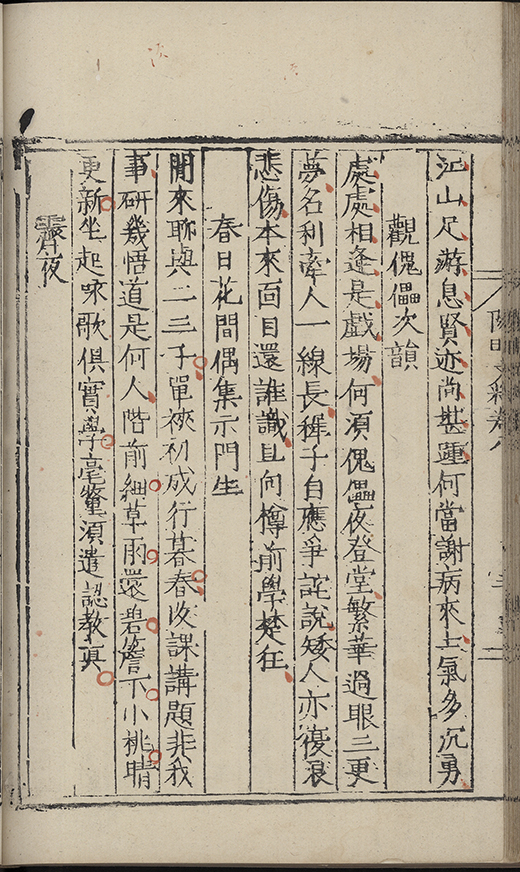 江山足游息賢迹尚堪踵何當謝病來士氣多沉勇
觀傀儡次韻
處處相逢是戲場何須傀儡夜登堂繁華過眼三更
夢名利牽人一線長穉子自應爭詫說矮人亦復浪
悲傷本來面目還誰識且向樽前學楚狂
春日花間偶集示門生
閒來聊與二三子單裌初成行暮春改課講題非我
事研幾悟道是何人階前細草雨還碧簷下小桃晴
更新坐起咏歌俱實學毫釐須遣認教真
霽夜